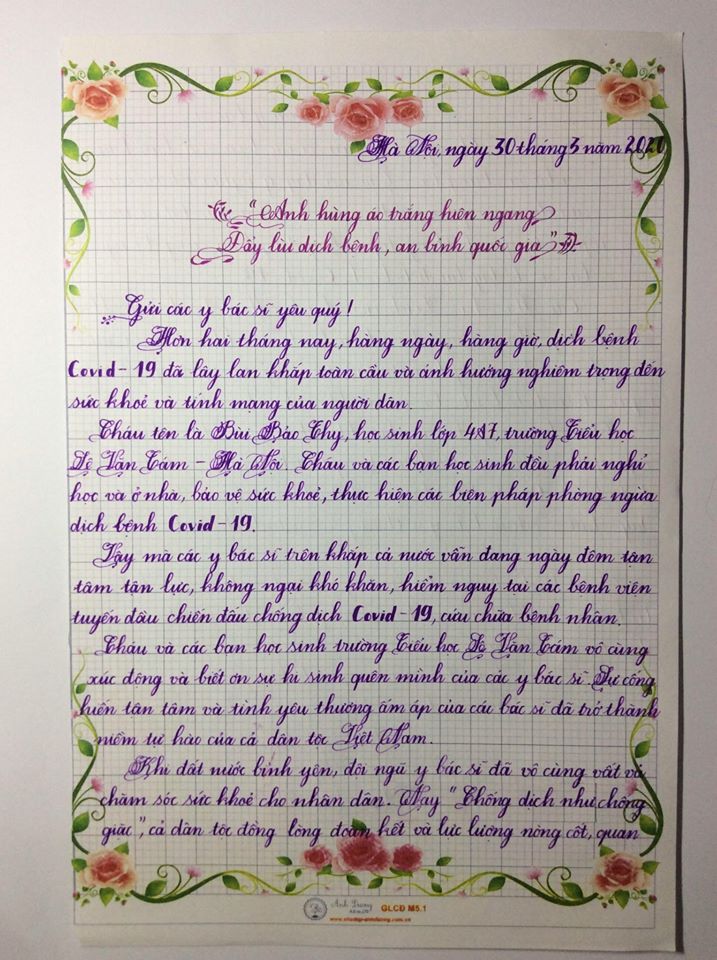 Hà Nội, ngày 30 tháng 3 năm 2020
"Anh hùng áo trắng hiên ngang
Đẩy lùi dịch bệnh, an bình quốc gia"
Gửi các y bác sĩ yêu quý!
Hơn hai tháng nay, hàng ngày, hàng giờ, dịch bệnh
Covid-19 đã lây lan khắp toàn cầu và ảnh hưởng nghiêm trọng đến
sức khoẻ và tính mạng của người dân.
Cháu tên là Bùi Bảo Thy, học sinh lớp 4A7, trường Tiểu học
Lê Văn Tám - Hà Nội. Cháu và các bạn học sinh đều phải nghỉ
học và ở nhà, bảo vệ sức khoẻ, thực hiện các biện pháp phòng ngừa
dịch bệnh Covid-19.
Vậy mà các y bác sĩ trên khắp cả nước vẫn đang ngày đêm tận
tâm tận lực, không ngại khó khăn, hiểm nguy tại các bệnh viện
tuyến đầu chiến đấu chống dịch Covid-19, cứu chữa bệnh nhân.
Cháu và các bạn học sinh trường Tiểu học Lê Văn Tám vô cùng
xúc động và biết ơn sự hi sinh quên mình của các y bác sĩ. Sự cống
hiến tận tâm và tình yêu thương ấm áp của các bác sĩ đã trở thành
niềm tự hào của cả dân tộc Việt Nam.
Khi đất nước bình yên, đội ngũ y bác sĩ đã vô cùng vất vả
chăm sóc sức khoẻ cho nhân dân. Nay "Chống dịch như chống
giặc", cả dân tộc đồng lòng đoàn kết và lực lượng nòng cốt, quan
Ánh Dương
GLCĐ M5.1